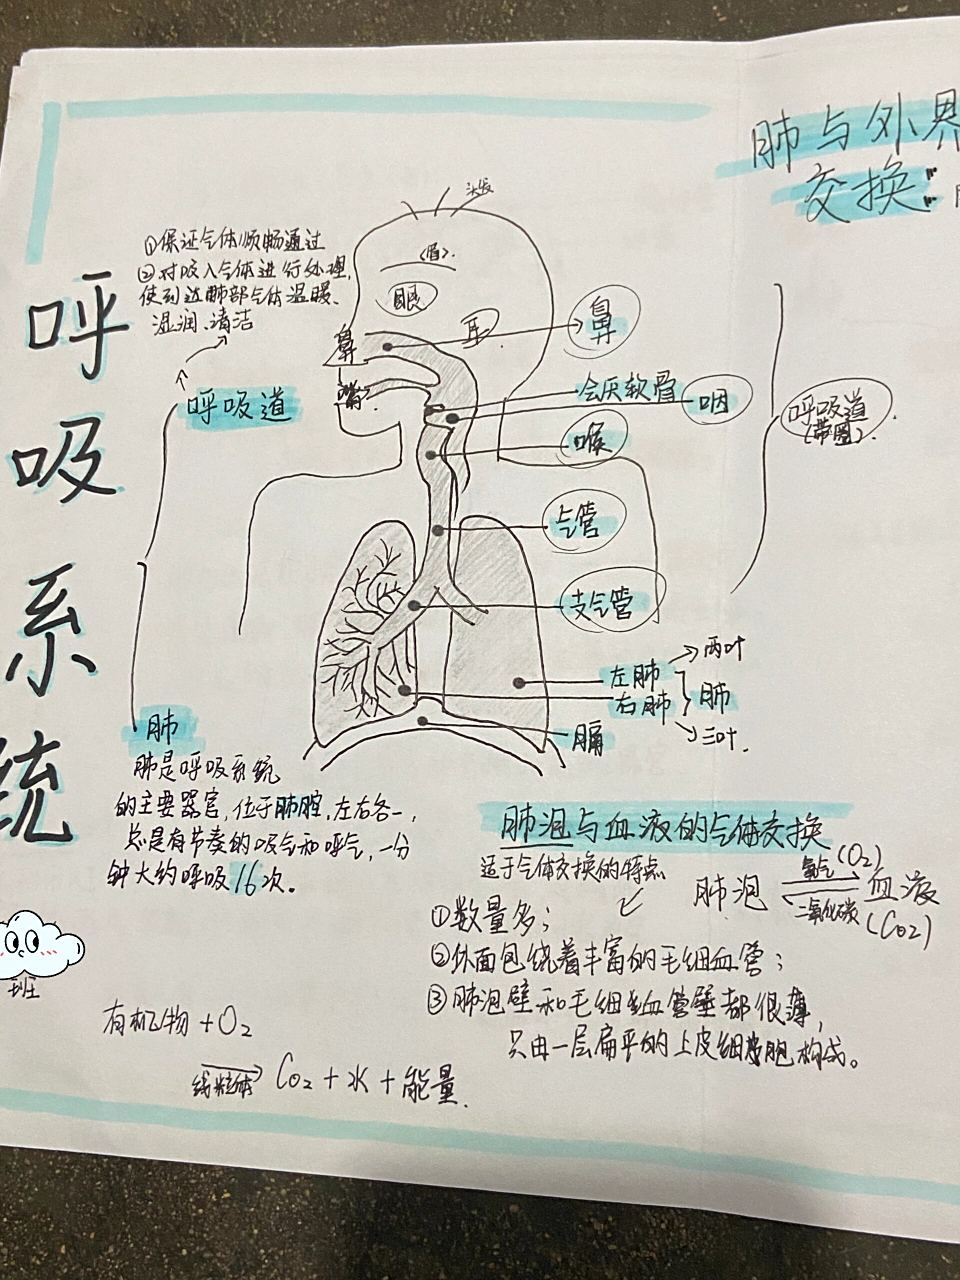 呼吸系统
肺与外界
交换:
头发
①保证气体顺畅通过
②对吸入气体进行处理,
使到达肺部气体温暖、
湿润、清洁
呼吸道
(眉)
眼
耳
鼻
嘴
鼻
会厌软骨
咽
喉
气管
支气管
呼吸道
(带圈).
左肺
两叶
右肺
肺
三叶.
膈
肺
肺是呼吸系统
的主要器官,位于胸腔,左右各一,
总是有节奏的吸气和呼气,一分
钟大约呼吸16次。
肺泡与血液的气体交换
适于气体交换的特点
肺泡 氧气(O2) 二氧化碳(CO2) 血液
①数量多;
②外面包绕着丰富的毛细血管;
③肺泡壁和毛细血管壁都很薄,
只由一层扁平的上皮细胞构成。
班
有机物+O2
线粒体 CO2+水+能量.